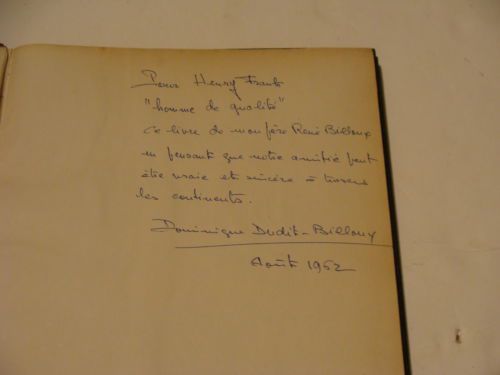 Pour Henry Frantz
"homme de qualité"
Ce livre de mon père René Billoux
en pensant que notre amitié peut
être vraie et sincère à travers
les continents.
Dominique Dudit-Billoux
Août 1962